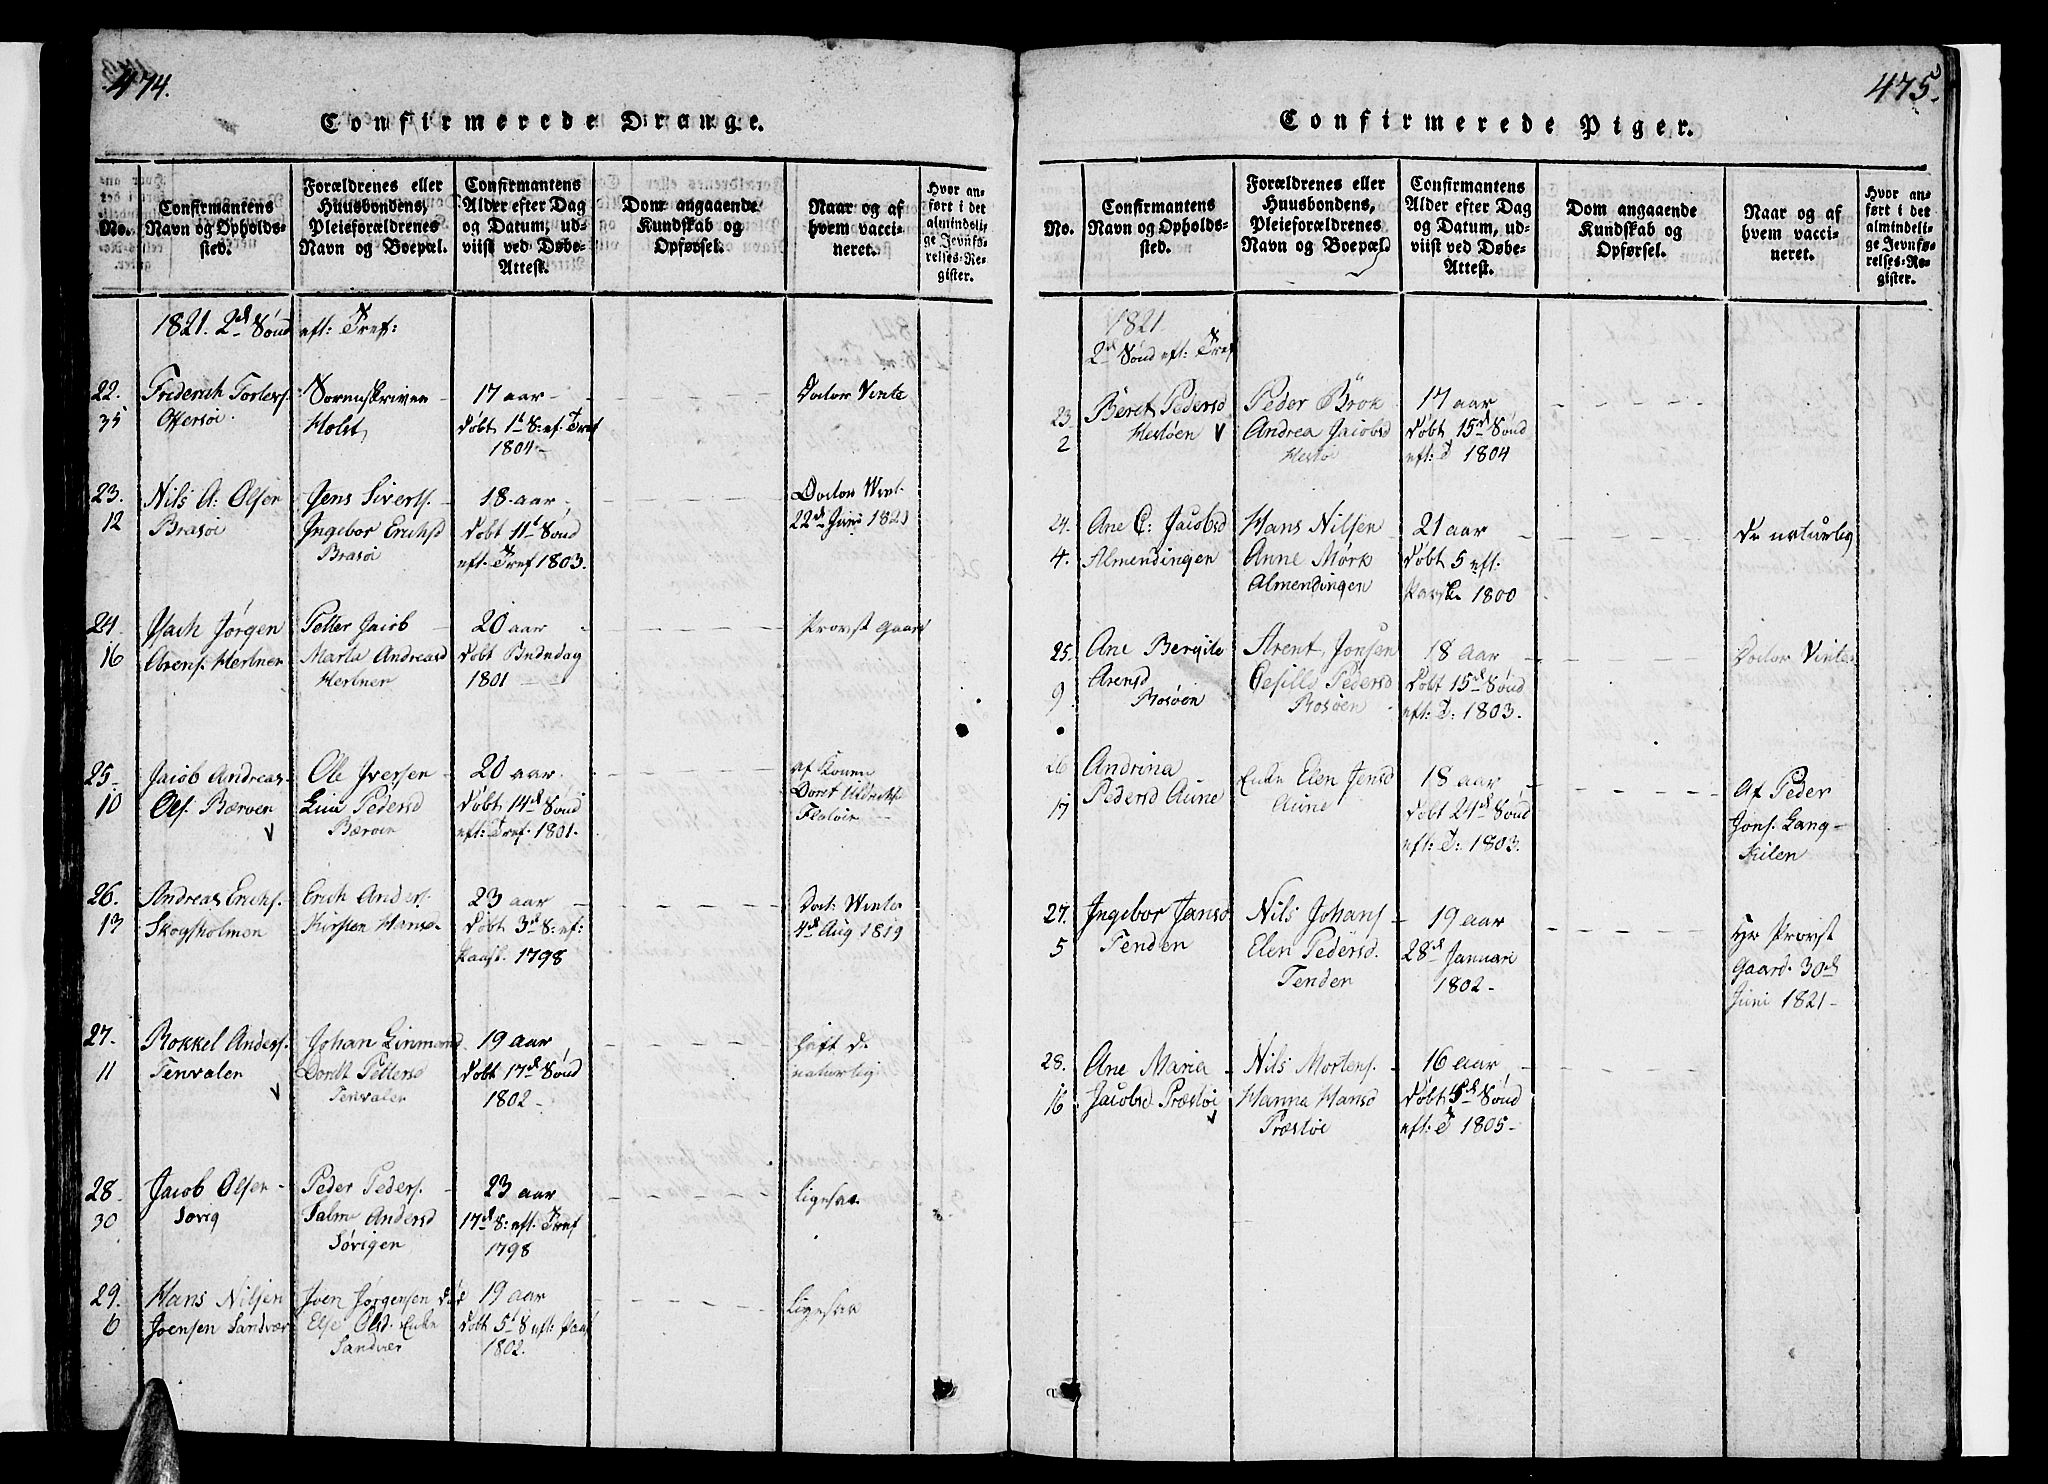 474.
Confirmerede Drange.
No.
Confirmantens
Navn og Opholds-
sted.
Forældrenes eller
Huusbondens,
Pleieforældrenes
Navn og Boepæl.
Confirmantens
Alder efter Dag
og Datum, ud-
viist ved Døbe-
Attest.
Dom angaaende
Kundskab og
Opførsel.
Naar og af
hvem vacci-
neret.
Hvor an-
ført i det
almindeli-
ge Jevnfø-
relses-Re-
gister.
1821. 2d Sönd eft: Tref:
22.
35
Friderich Torlers.
Offersöi.
Sorenskriver
Holst
17 aar
döbt 1t S: ef. Tref
1804
Doctor Vinte
23.
12
Nils A: Olsen
Brasöi
Jens Siverts.
Ingebor Erichsd
Brasöi
18 aar
döbt 11t Sönd
eft. Tref 1803.
Doctor Wint.
22d Juni 1821
24.
16
Isach Jörgen
Arens. Hestner
Petter Jacob
Marta Andreasd
Hestner
20 aar
döbt Bededag
1801
Provst Gaard
25.
10
Jacob Andreas
Ols. Bærøen
Ole Iversen
Line Pedersd
Bærøen
20 aar
döbt 14d Sönd
eft: Tref. 1801.
af Konen
Doret Uldrichs
26.
13
Andreas Erichs.
Skogsholmen
Erich Anders.
Kirsten Hansd.
23 aar
döbt 3d S: ef:
Paask. 1798
Doct: Winter
4d Aug 1819
27.
11
Rokkel Anders.
Tenvalen
Johan Linmand
Dordt Pettersd
Tenvalen
19 aar
döbt 17d Sönd
1802
haft de
naturlig
28
30
Jacob Olsen
Sörig
Peder Peders.
Salm Andersd
Sörigen
23 aar
17d S: eft. Tref
1798
ligesaa
29.
6
Hans Nilsen
Joensen Sandvær
Joen Jørgensen död
Else Olsd. Enke
Sandvær
19 aar
döbt 5t S eft: Paas
1802.
Ligesaa
475.
Confirmerede Piger.
No.
Confirmantens
Navn og Opholds-
sted.
Forældrenes eller
Huusbondens,
Pleieforældrenes
Navn og Boepæl.
Confirmantens
Alder efter Dag
og Datum, ud-
viist ved Døbe-
Attest.
Dom angaaende
Kundskab og
Opførsel.
Naar og af
hvem vacci-
neret.
Hvor an-
ført i det
almindeli-
ge Jevnfø-
relses-Re-
gister.
1821
2d Sönd eft: Tref
23
2
Beret Pedersd
Hestøen
Peder Brok
Andrea Jacobsd
Hestöi
17 aar
döbt 15d Sönd
eft: T 1804
24.
4.
Ane C: Jacobsd
Almendingen
Hans Nilsen
Anne Mörk
Almendingen
21 aar
döbt 5 eft.
Paask. 1800
de naturlig
25.
9
Ane Bergite
Arensd
Rosøen
Arent Jonsen
Gesille Pedersd
Rosøen
18 aar
döbt 15d Sönd
eft: T: 1803.
Doctor Vinter
26
17
Andrina
Pedersd Aune
Enke Elen Jensd
Aune
18 aar
döbt 24d Sönd
eft: T: 1803.
Af Peder
Jons. Lang-
Kilen
27.
5
Ingebor Jansd
Tenden
Nils Johans
Elen Pedersd.
Tenden
19 aar
28d Januari
1802
Hr Provst
Gaard. 30d
Juni 1821
28.
16
Ane Maria
Jacobsd Præstöi
Nils Mortens.
Hanna Hansd
Præstöi
16 aar
döbt 5d Sönd
eft: T 1805